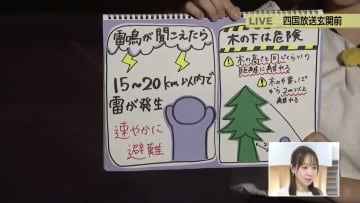 LIVE 四国放送玄関前
雷鳴が聞こえたら
15~20km以内で
雷が発生
速やかに
避難
木の下は危険
木の高さと同じくらいの
距離に離れる
木の
から2m以上
離れる